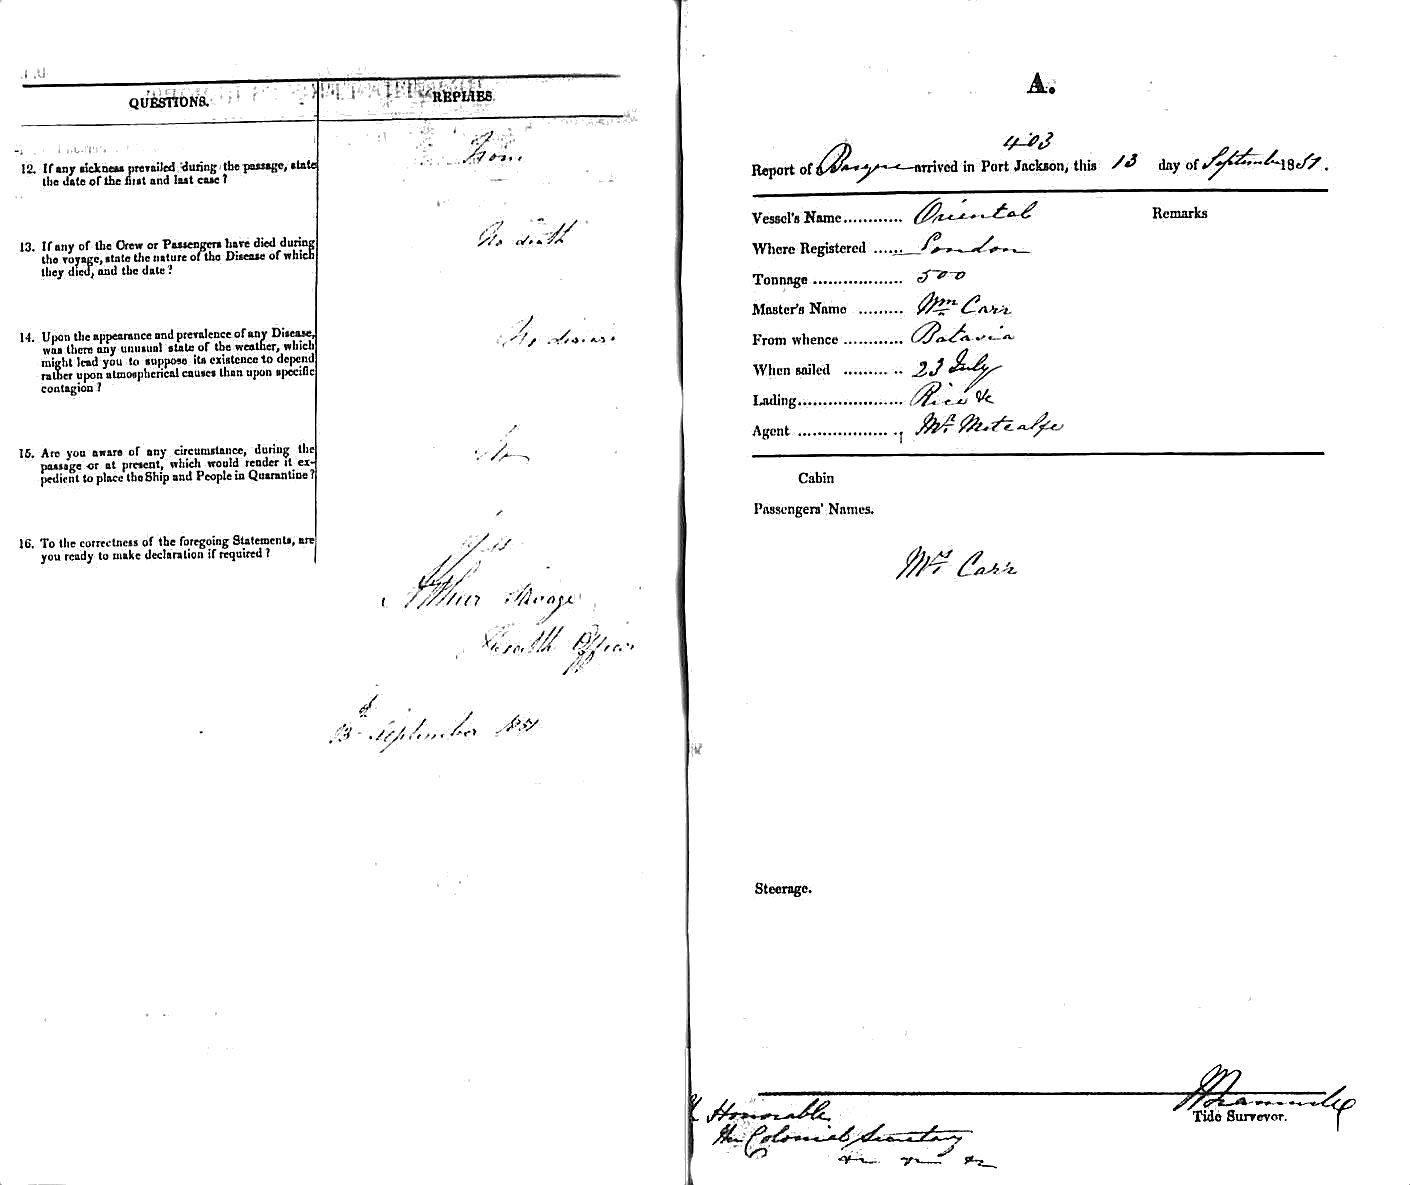 QUESTIONS.
REPLIES
12. If any sickness prevailed during the passage, state
the date of the first and last case ?
13. If any of the Crew or Passengers have died during
the voyage, state the nature of the Disease of which
they died, and the date ?
No death
14. Upon the appearance and prevalence of any Disease,
was there any unusual state of the weather, which
might lead you to suppose its existence to depend
rather upon atmospherical causes than upon specific
contagion ?
No disease
15. Are you aware of any circumstance, during the
passage or at present, which would render it ex-
pedient to place the Ship and People in Quarantine ?
No
16. To the correctness of the foregoing Statements, are
you ready to make declaration if required ?
Yes
Arthur Savage
Health Officer
13th September 1851
A.
403
Report of Barque arrived in Port Jackson, this 13 day of September 1851.
Vessel's Name............ Oriental
Remarks
Where Registered ...... London
Tonnage .................. 500
Master's Name ......... Wm Carr
From whence ............ Batavia
When sailed ......... .. 23 July
Lading..................... Rice &c
Agent .................. .. Mr. Metcalfe
Cabin
Passengers' Names.
Mrs Carr
Steerage.
Tide Surveyor.
Honorable
The Colonial Secretary
&c &c &c